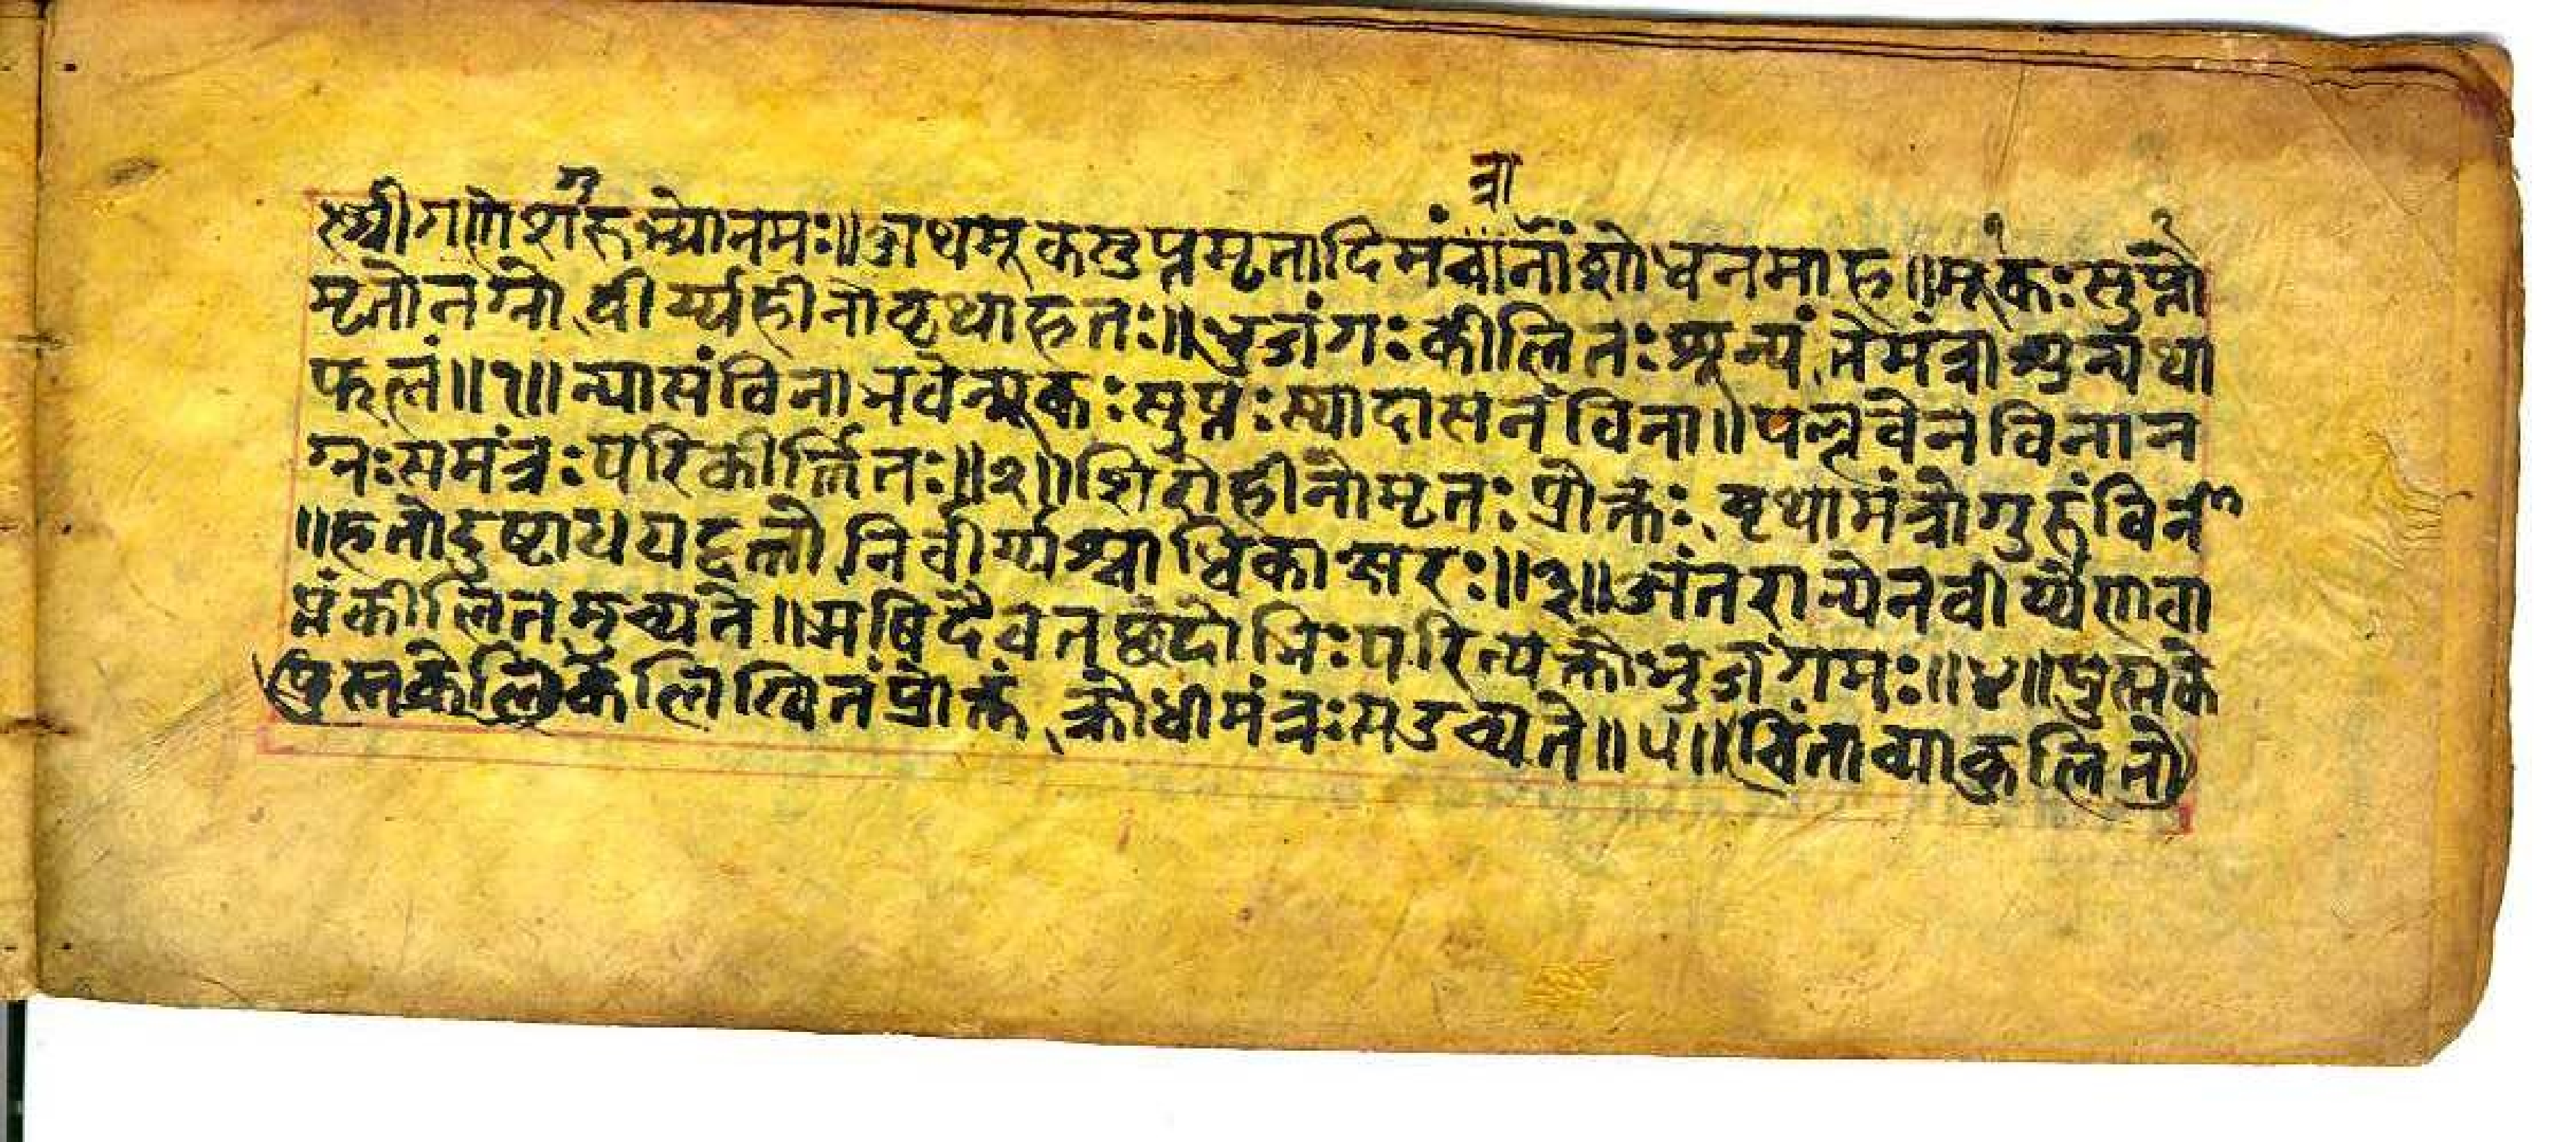 श्रीगणेशगुरुभ्योनमः॥अथमूकसुप्तमृतादिमंत्रानांशोधनमाह॥मूकःसुप्तो
मृतोनग्नो वीर्य्यहीनोवृथाहतः॥भुजंगःकीलितःश्रून्यं तेमंत्राश्रुन्यथा
फलं॥१॥न्यासंविनाभवेन्मूकःसुप्तःस्यादासनंविना॥पल्लवेनविनान
ग्नःसमंत्रःपरिकीर्त्तितः॥२॥शिरोहीनोमृतःप्रोक्तः वृथामंत्रोगुरुंविना
॥हतोदुष्टाययद्दत्तो निर्वीर्य्यश्चाधिकाक्षरः॥३॥अंतरान्येनवीर्य्येणवा
प्तंकीलितमुच्यते॥ऋषिदैवतछंदोभिःपरित्यक्तोभुजंगमः॥४॥पुस्तके
पुस्तकेलिकेलिखितंप्रोक्तं क्रोधीमंत्रःसउच्यते॥५॥चिंताव्याकुलितो